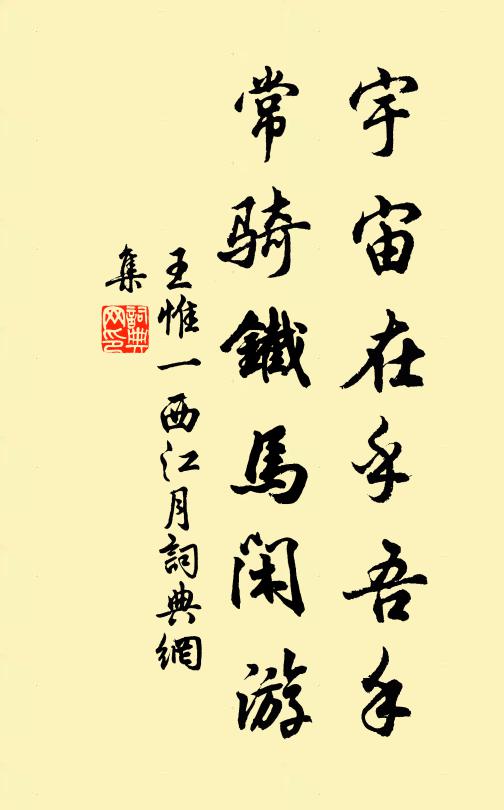 宇宙在乎吾手
常骑鐵馬閑游
王惟一西江月詞典網
集
詞典
网印